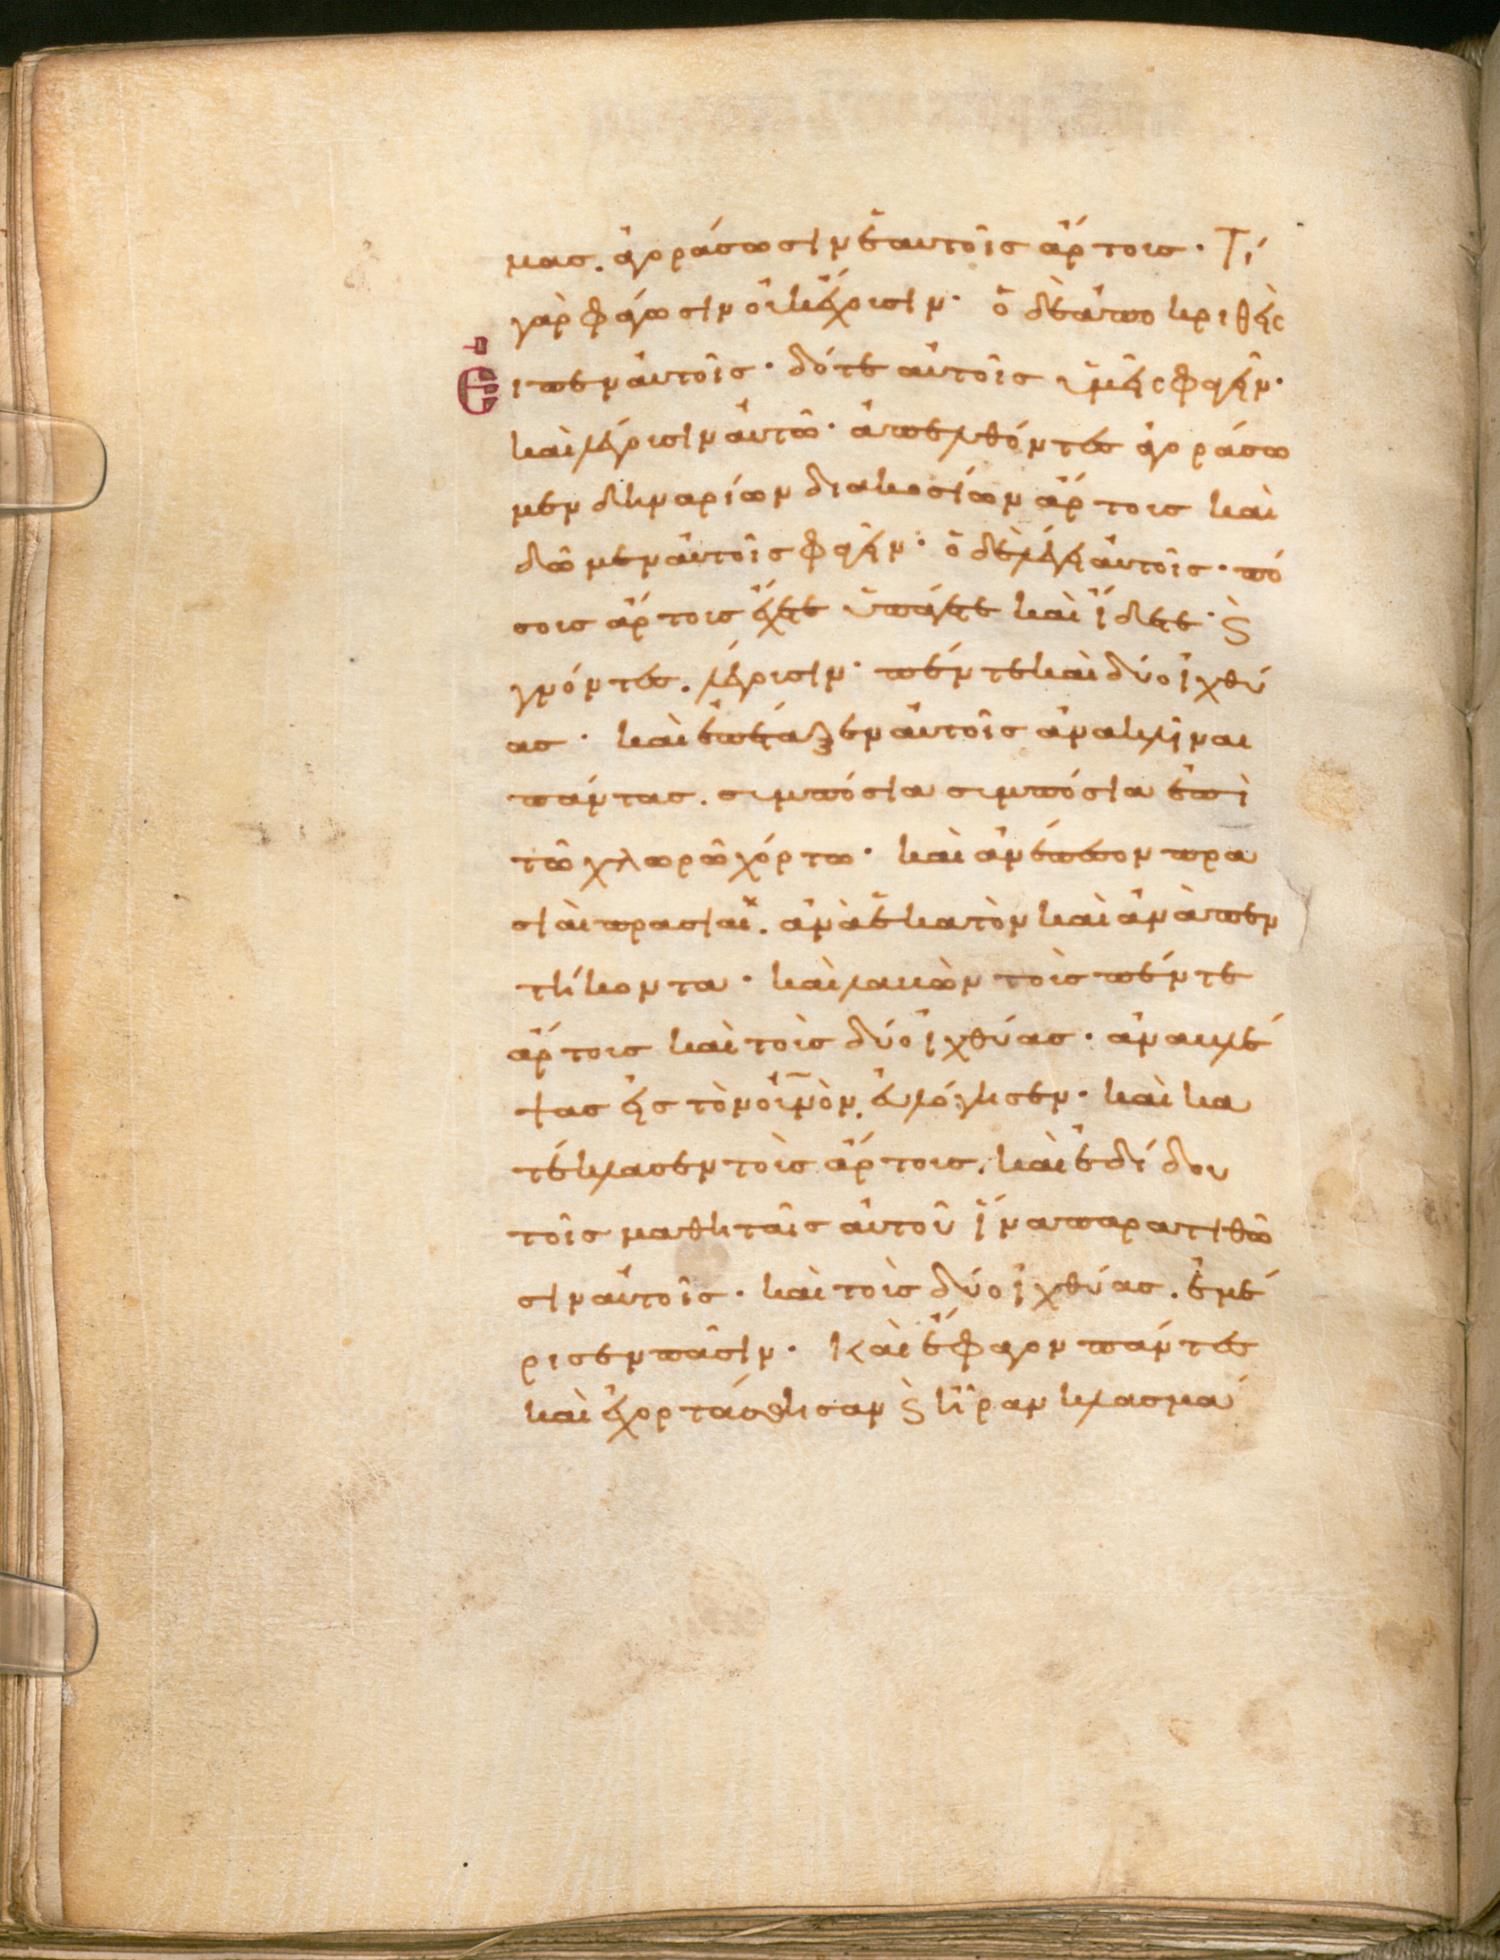 μας. ἀγοράσωσιν ἑαυτοῖς ἄρτους· Τί
γὰρ φάγωσιν οὐκ ἔχουσιν· ὁ δὲ ἀποκριθεὶς
Εἶπεν αὐτοῖς· δότε αὐτοῖς ὑμεῖς φαγεῖν·
καὶ λέγουσιν αὐτῶ· ἀπελθόντες ἀγοράσω
μεν δηναρίων διακοσίων ἄρτους καὶ
δῶμεν αὐτοῖς φαγεῖν· ὁ δὲ λέγει αὐτοῖς· πό
σους ἄρτους ἔχετε ὑπάγετε καὶ ἴδετε· ϗ
γνόντες. λέγουσιν· πέντε καὶ δύο ἰχθύ
ας· καὶ ἐπέταξεν αὐτοῖς ἀνακλῖναι
πάντας. συμπόσια συμπόσια ἐπὶ
τῶ χλωρῶ χόρτω· καὶ ἀνέπεσον πρα
σιαὶ πρασιαΐ. ἀνὰ ἑκατὸν καὶ ἀνὰ πεν
τήκοντα· καὶ λαβὼν τοὺς πέντε
ἄρτους καὶ τοὺς δύο ἰχθύας· ἀναβλέ
ψας εἰς τὸν οὐ̅ν̅ὸν. εὐλόγησεν· καὶ κα
τέκλασεν τοὺς ἄρτους. καὶ ἐδίδου
τοῖς μαθηταῖς αὐτοῦ ἵνα παρατιθῶ
σιν αὐτοῖς· καὶ τοὺς δύο ἰχθύας. ἐμέ
ρισεν πᾶσιν· Καὶ ἔφαγον πάντες
καὶ ἐχορτάσθησαν ϗ ἦραν κλασμά